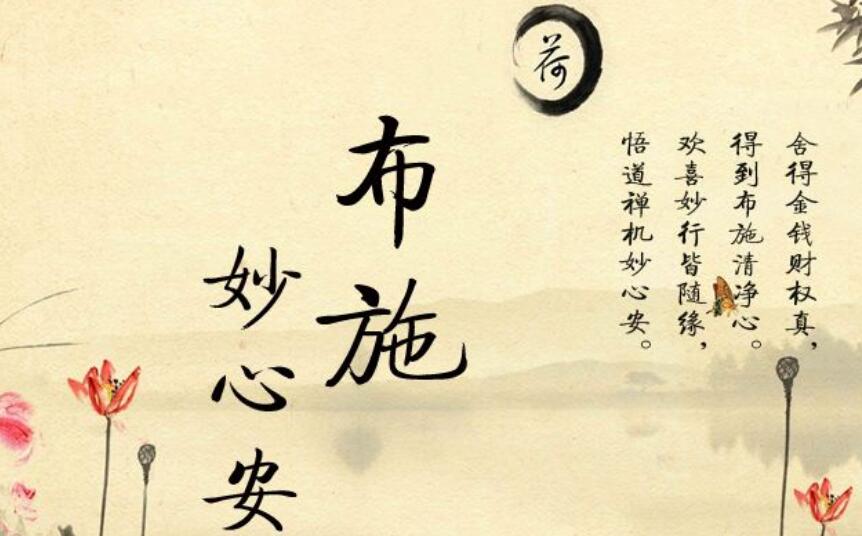 荷
舍得金钱财权真，
得到布施清净心。
欢喜妙行皆随缘，
悟道禅机妙心安。
布施
妙心安